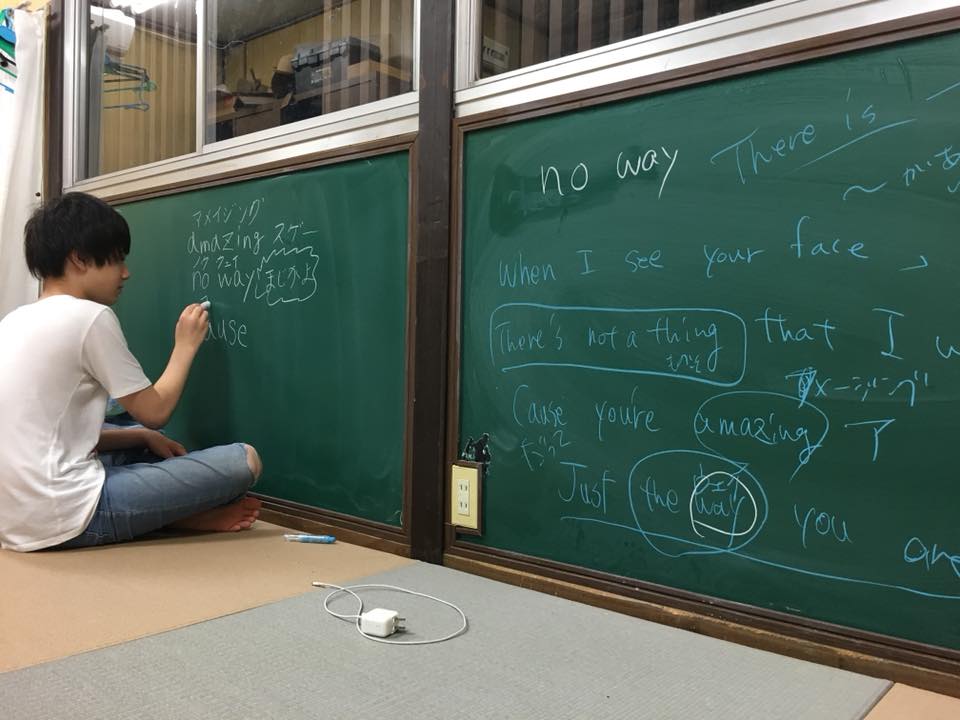 アメイジング
amazing スゲー
ノウ ウェイ
no way まじかよ
ause
no way There is
When I see your face,
There's not a thing that I
もの
アメージング
Cause you're amazing
Just the way you are
ウェイ